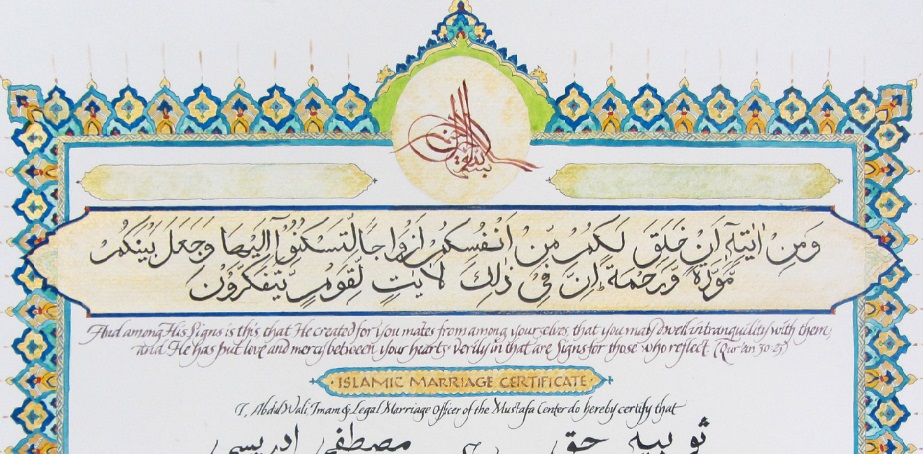 وَمِنْ اٰيٰتِهٖٓ اَنْ خَلَقَ لَكُمْ مِّنْ اَنْفُسِكُمْ اَزْوَاجًا لِّتَسْكُنُوْٓا اِلَيْهَا وَجَعَلَ بَيْنَكُمْ
مَّوَدَّةً وَّرَحْمَةً اِنَّ فِيْ ذٰلِكَ لَاٰيٰتٍ لِّقَوْمٍ يَّتَفَكَّرُوْنَ
And among His Signs is this that He created for you mates from among yourselves that you may dwell in tranquility with them;
and He has put love and mercy between your hearts verily in that are Signs for those who reflect. (Qur'an 30:21)
ISLAMIC MARRIAGE CERTIFICATE
I, Abdul Wali Imam & Legal Marriage Officer of the Mustafa Center do hereby certify that
ثوبيه حق مصطفى ادريسي